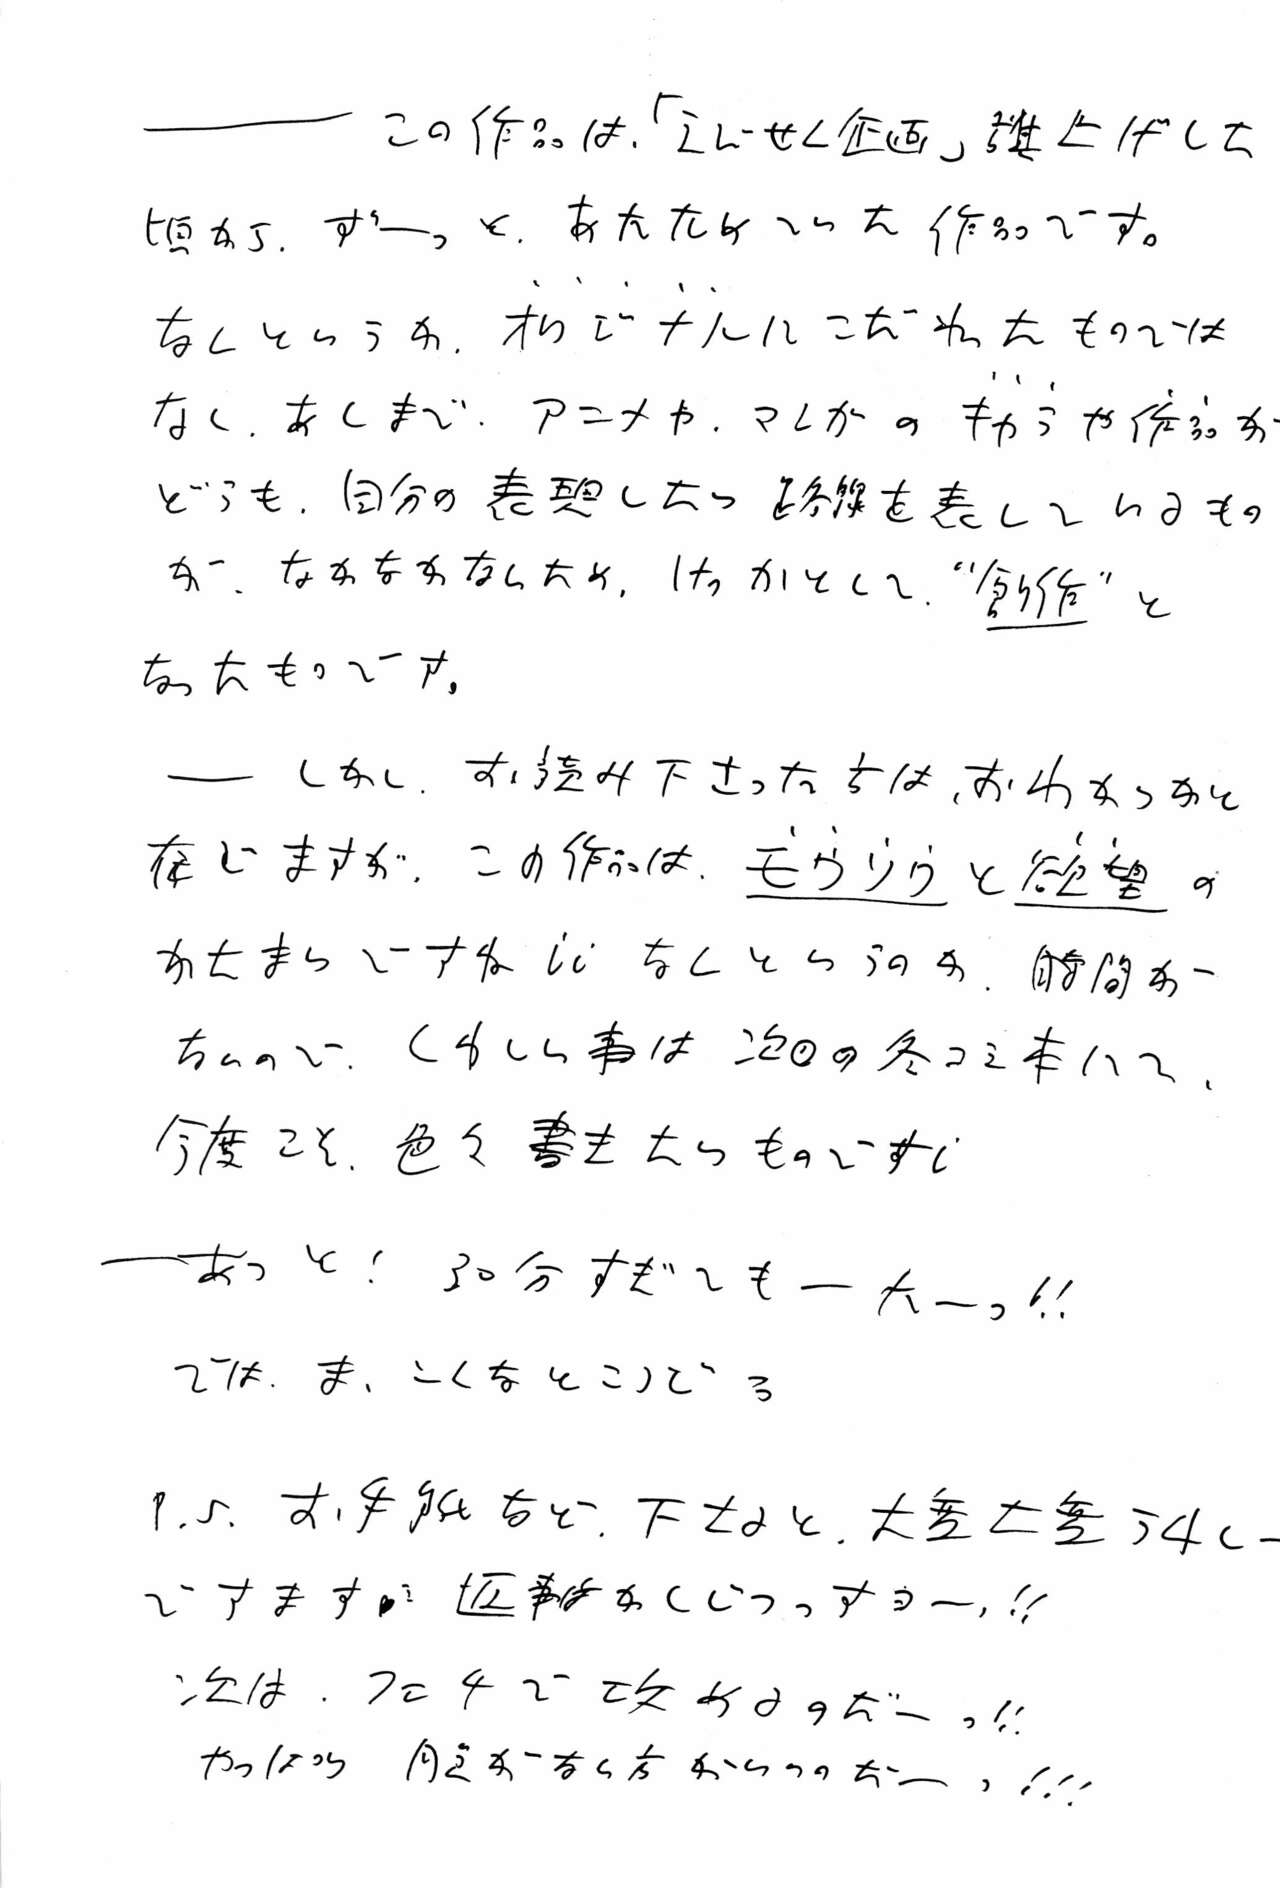 ――この作品は、「えんせく企画」旗上げした
頃から、ずーっと、あたためていた作品です。
なんというか、オリジナルにこだわったものでは
なく、あくまで、アニメや、マンガのキャラや作品が
どうも、自分の表現したい路線を表しているもの
が、なかなかないため、けっかとして、“創作”と
なったものです。
――しかし、お読み下さった方は、おわかりかと
存じますが、この作品は、モウソウと欲望の
かたまりですね!! なんというのか、時間が
ないので、くわしい事は次回の冬コミ本にて、
今度こそ、色々書きたいものです!
――あっと! 30分すぎてもーたーっ!!
では、ま、こんなところでろ
P.S. お手紙など、下さると、大変大変うれしー
でアます。 返事はかくじつっすヨー!!
次は、フェチで攻めるのだーっ!!
やっぱり 自主がない方がいいのだーっ!!!